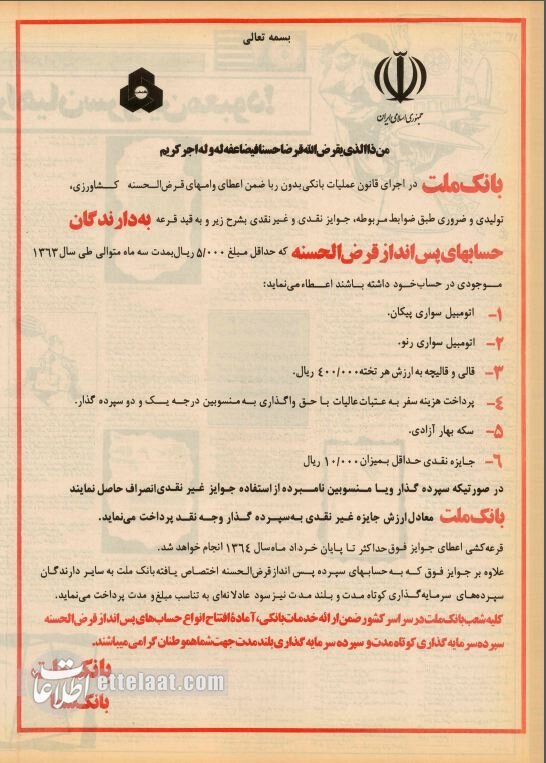 بسمه تعالی
جمهوری اسلامی ایران
من ذا الذی یقرض الله قرضا حسنا فیضاعفه له و له اجر کریم
بانک ملت در اجرای قانون عملیات بانکی بدون ربا ضمن اعطای وامهای قرض‌الحسنه کشاورزی،
تولیدی و ضروری طبق ضوابط مربوطه، جوایز نقدی و غیر نقدی بشرح زیر و به قید قرعه به دارندگان
حسابهای پس انداز قرض الحسنه که حداقل مبلغ ۵/۰۰۰ ریال بمدت سه ماه متوالی طی سال ۱۳۶۳
موجودی در حساب خود داشته باشند اعطاء می‌نماید:
۱- اتومبیل سواری پیکان.
۲- اتومبیل سواری رنو.
۳- قالی و قالیچه به ارزش هر تخته ۴۰۰/۰۰۰ ریال.
۴- پرداخت هزینه سفر به عتبات عالیات با حق واگذاری به منسوبین درجه یک و دو سپرده گذار.
۵- سکه بهار آزادی.
۶- جایزه نقدی حداقل بمیزان ۱۰/۰۰۰ ریال
در صورتیکه سپرده گذار ویا منسوبین نامبرده از استفاده جوایز غیر نقدی انصراف حاصل نمایند
بانک ملت معادل ارزش جایزه غیر نقدی به سپرده گذار وجه نقد پرداخت می‌نماید.
قرعه‌کشی اعطای جوایز فوق حداکثر تا پایان خرداد ماه سال ۱۳۶۴ انجام خواهد شد.
علاوه بر جوایز فوق که به حسابهای سپرده پس انداز قرض‌الحسنه اختصاص یافته بانک ملت به سایر دارندگان
سپرده‌های سرمایه‌گذاری کوتاه مدت و بلند مدت نیز سود عادلانه‌ای به تناسب مبلغ و مدت پرداخت می‌نماید.
کلیه شعب بانک ملت در سراسر کشور ضمن ارائه خدمات بانکی، آمادهٔ افتتاح انواع حساب‌های پس انداز قرض الحسنه
سپرده سرمایه گذاری کوتاه مدت و سپرده سرمایه گذاری بلند مدت جهت شما هموطنان گرامی میباشند.
بانک ملت
بانک شما
اطلاعات
ettelaat.com